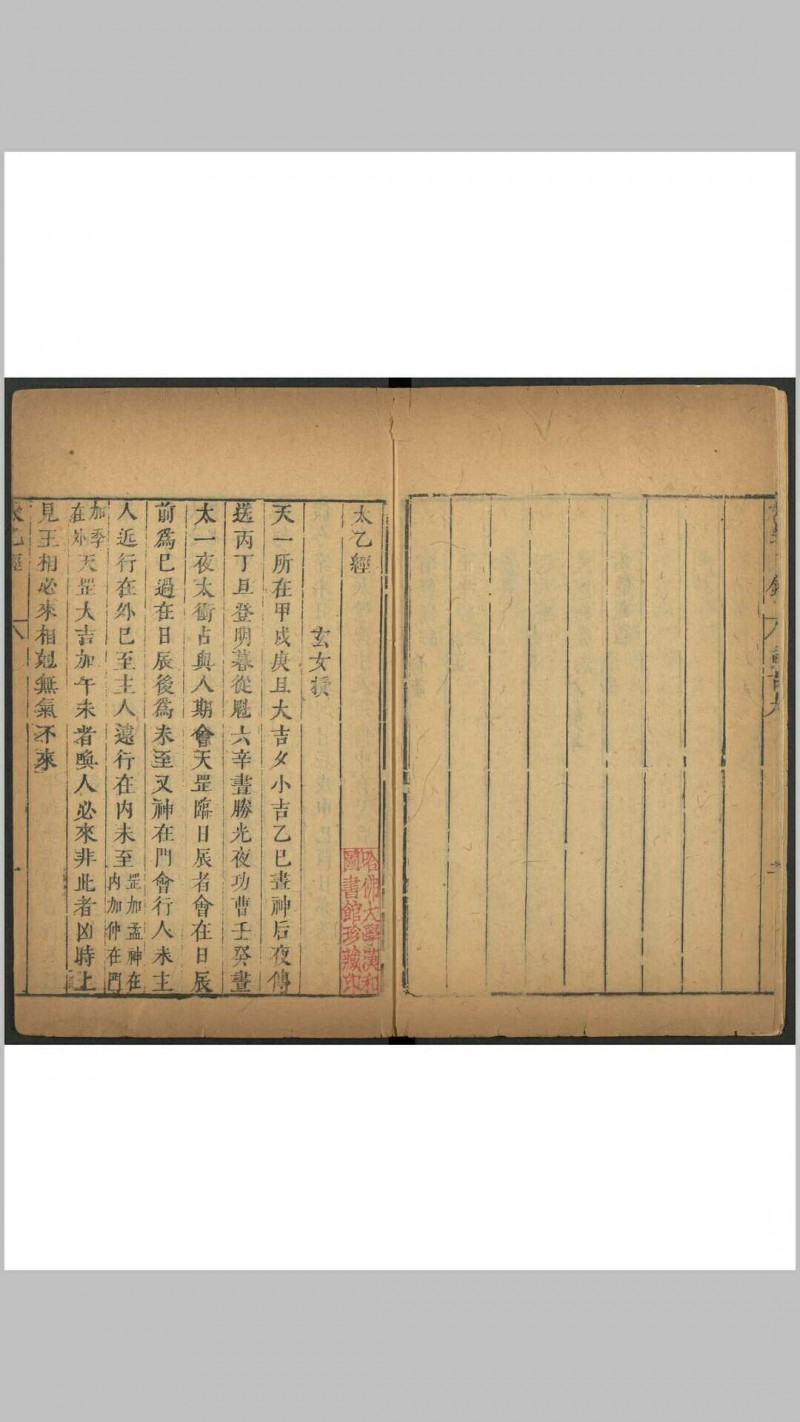 太乙經
玄女撰
天一所在甲戌庚旦大吉夕小吉乙巳晝神后夜傳
送丙丁旦登明暮從魁六辛晝勝光夜功曹壬癸晝
太一夜太衝占與人期會天罡臨日辰者會在日辰
前爲巳過在日辰後爲未至又神在門會行人未主
人近行在外巳至主人遠行在内未至罡加孟神在
内加仲在門
加季
在外天罡大吉加午未者喚人必來非此者凶時上
見王相必來相剋無氣不來
太乙經
哈佛大學漢和
圖書館珍藏印